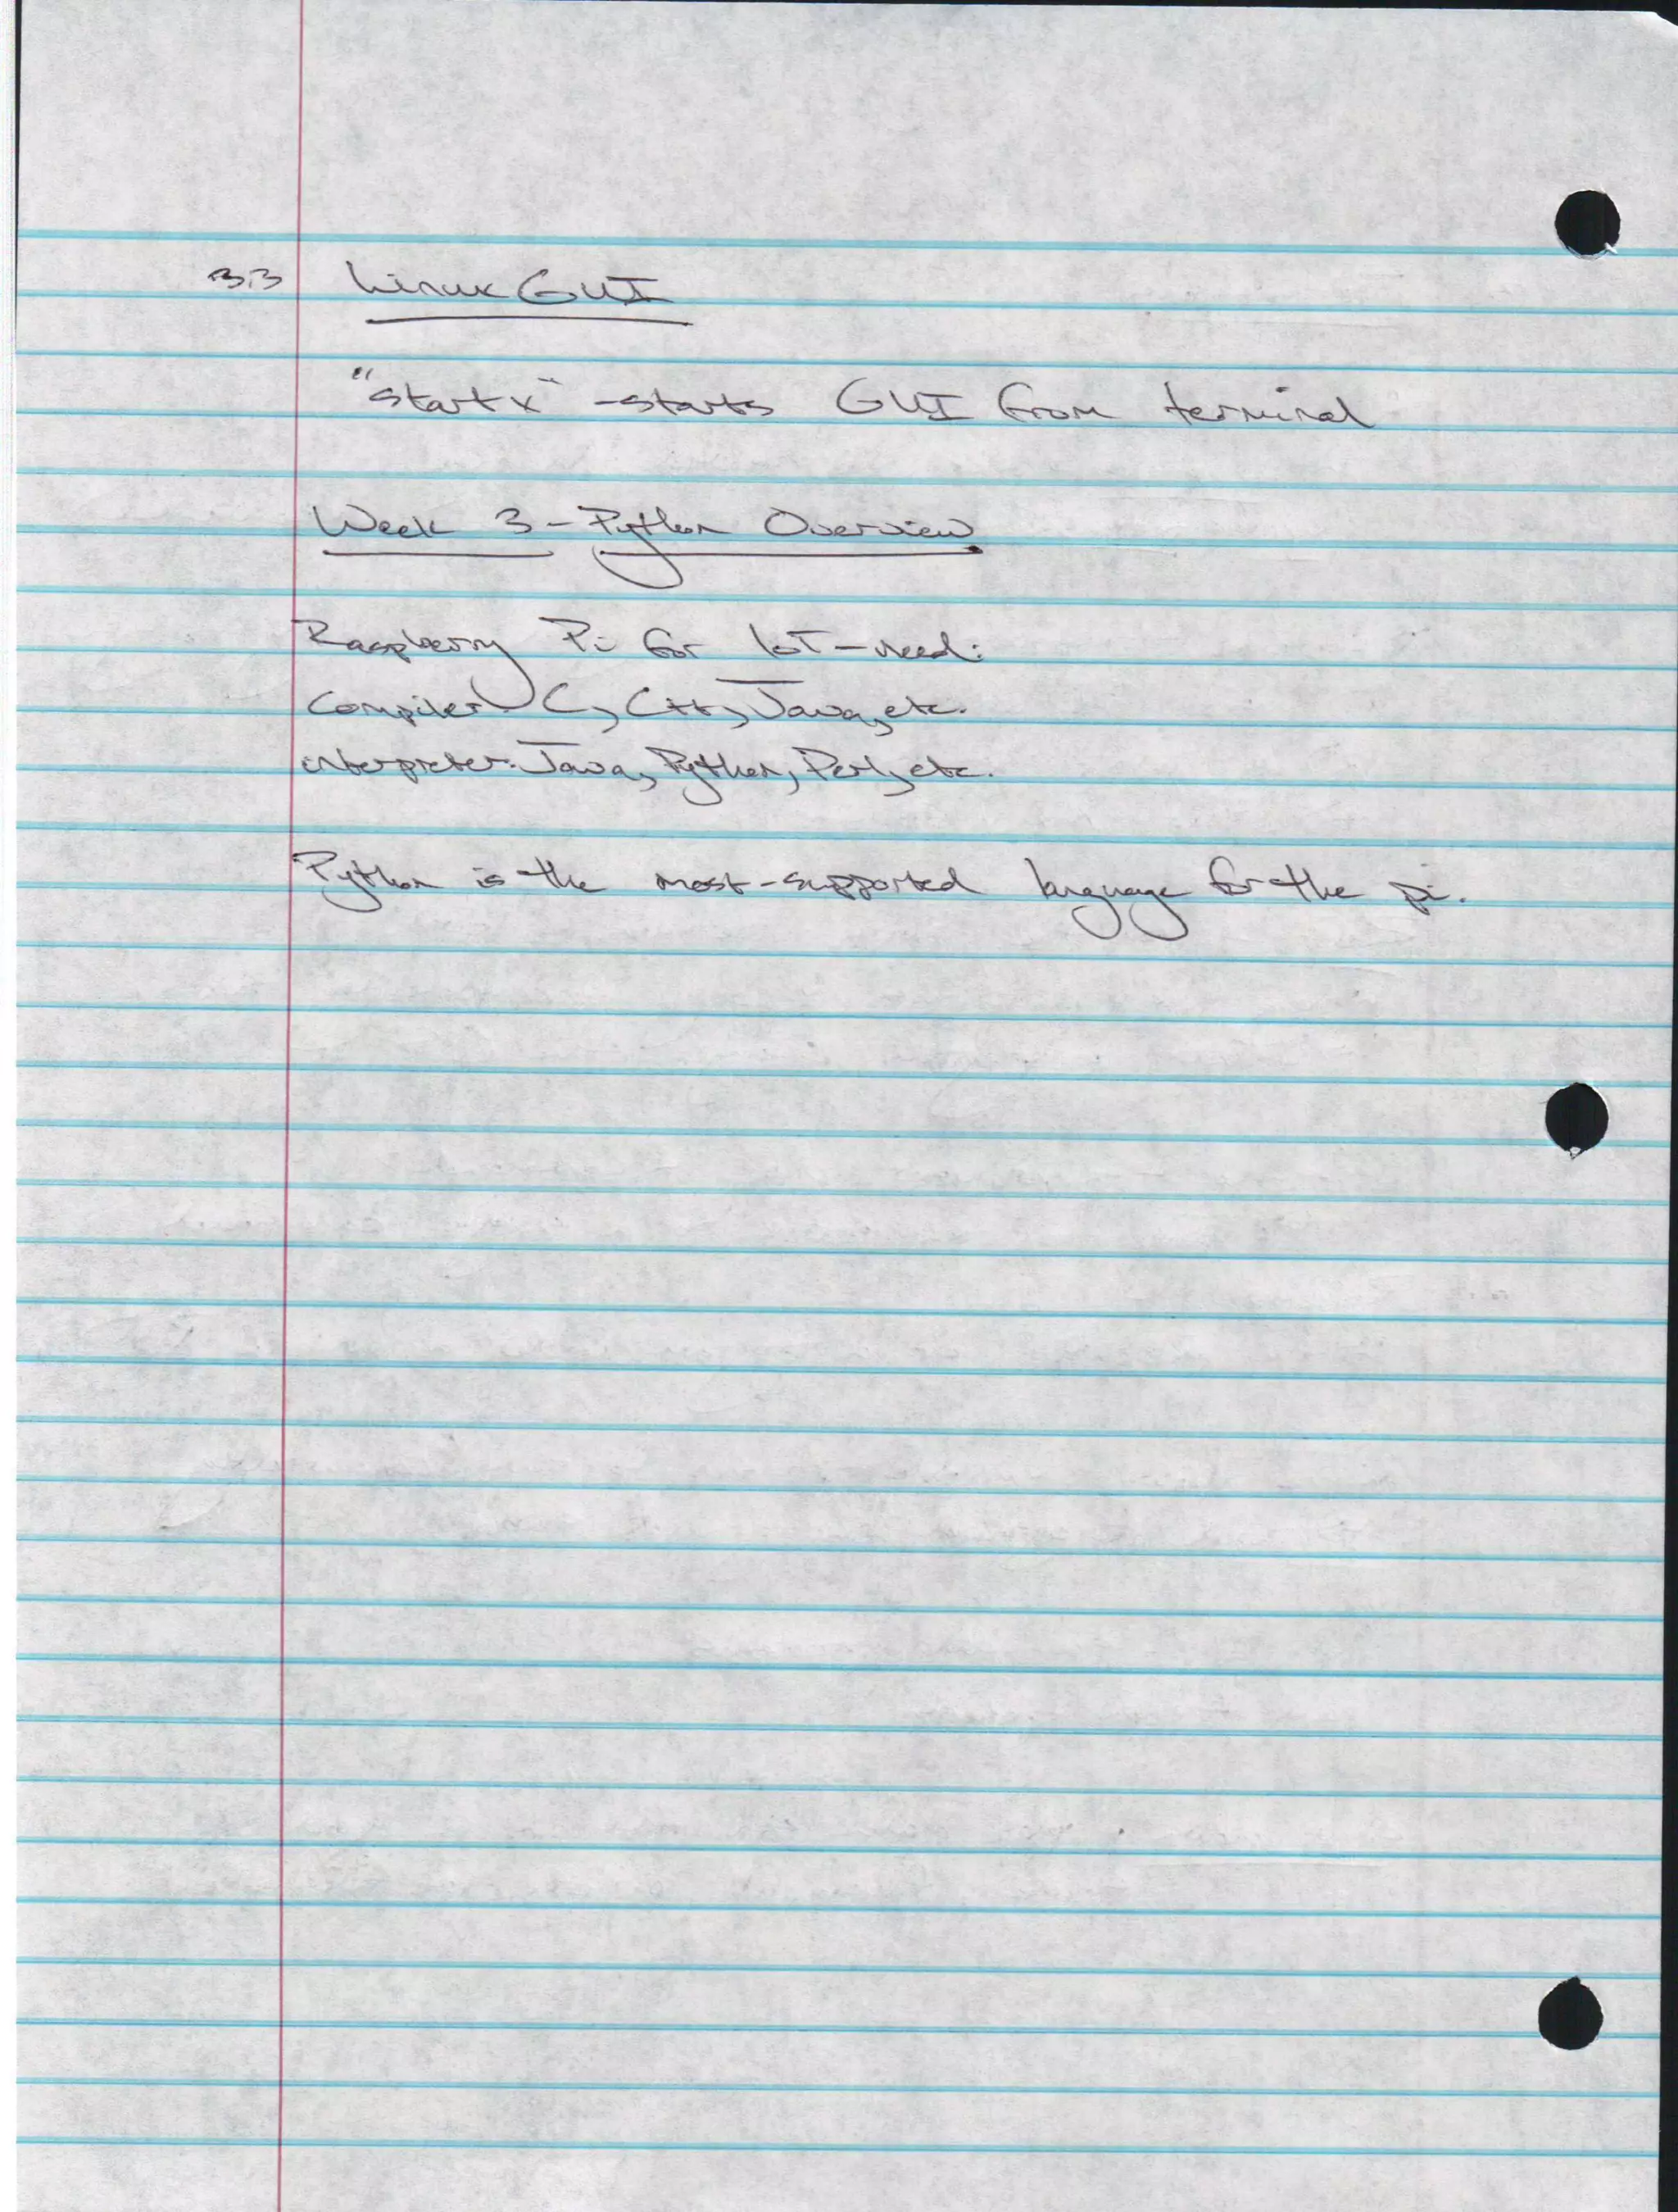 3.3 Linux GUI
"startx" - starts GUI from terminal
Week 3 - Python Overview
Raspberry Pi for IoT - need:
Compiler - C, C++, Java, etc.
interpreter - Java, Python, Perl, etc.
Python is the most-supported language for the pi.